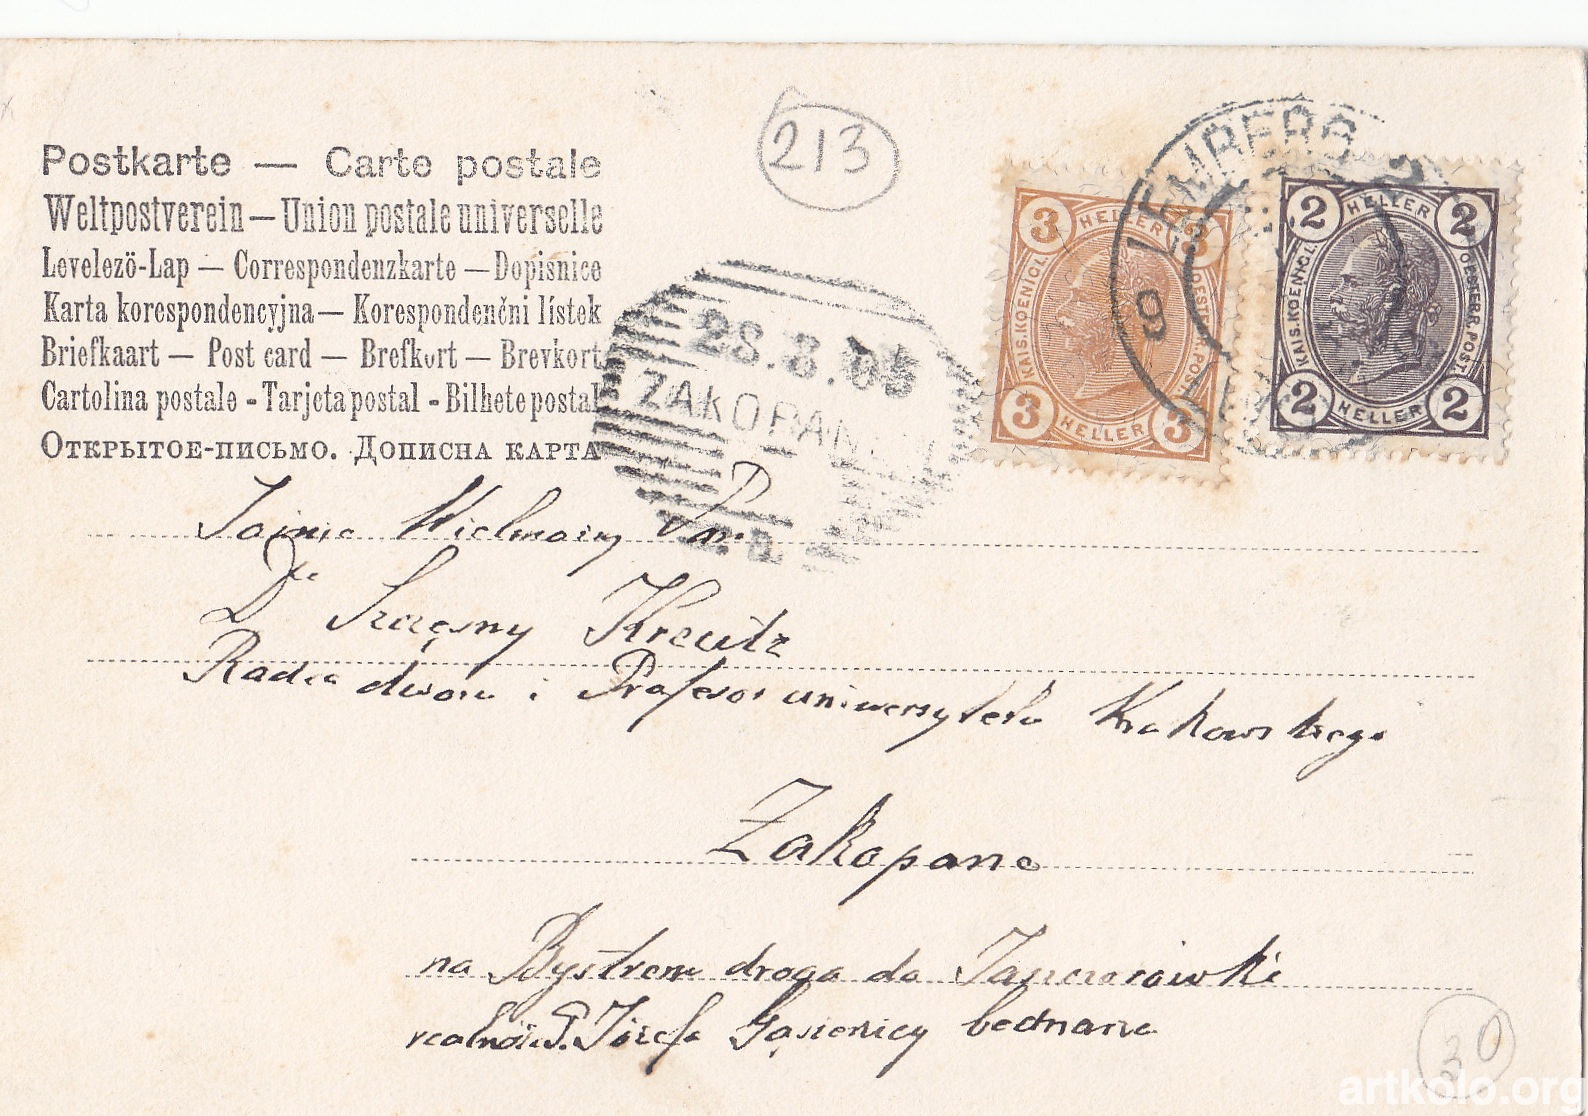 213
Postkarte — Carte postale
Weltpostverein — Union postale universelle
Levelezö-Lap — Correspondenzkarte — Dopisnice
Karta korespondencyjna — Korespondenčni lístek
Briefkaart — Post card — Brefkort — Brevkort
Cartolina postale - Tarjeta postal - Bilhete postal
Открытое-письмо. Дописна карта
3 HELLER 3
KAIS. KOENIGL. OESTERR. POST
3 HELLER 3
LEMBERG
9
2 HELLER 2
KAIS. KOENIGL. OESTERR. POST.
2 HELLER 2
28.8.05
ZAKOPANE
Jaśnie Wielmożny Pan
Dr Szczęsny Kreutz
Radca dworu i Profesor uniwersytetu Krakowskiego
Zakopane
na Bystrem droga do Jaszczurówki
realność P. Józefa Gąsienicy bednarza
30
artkolo.org